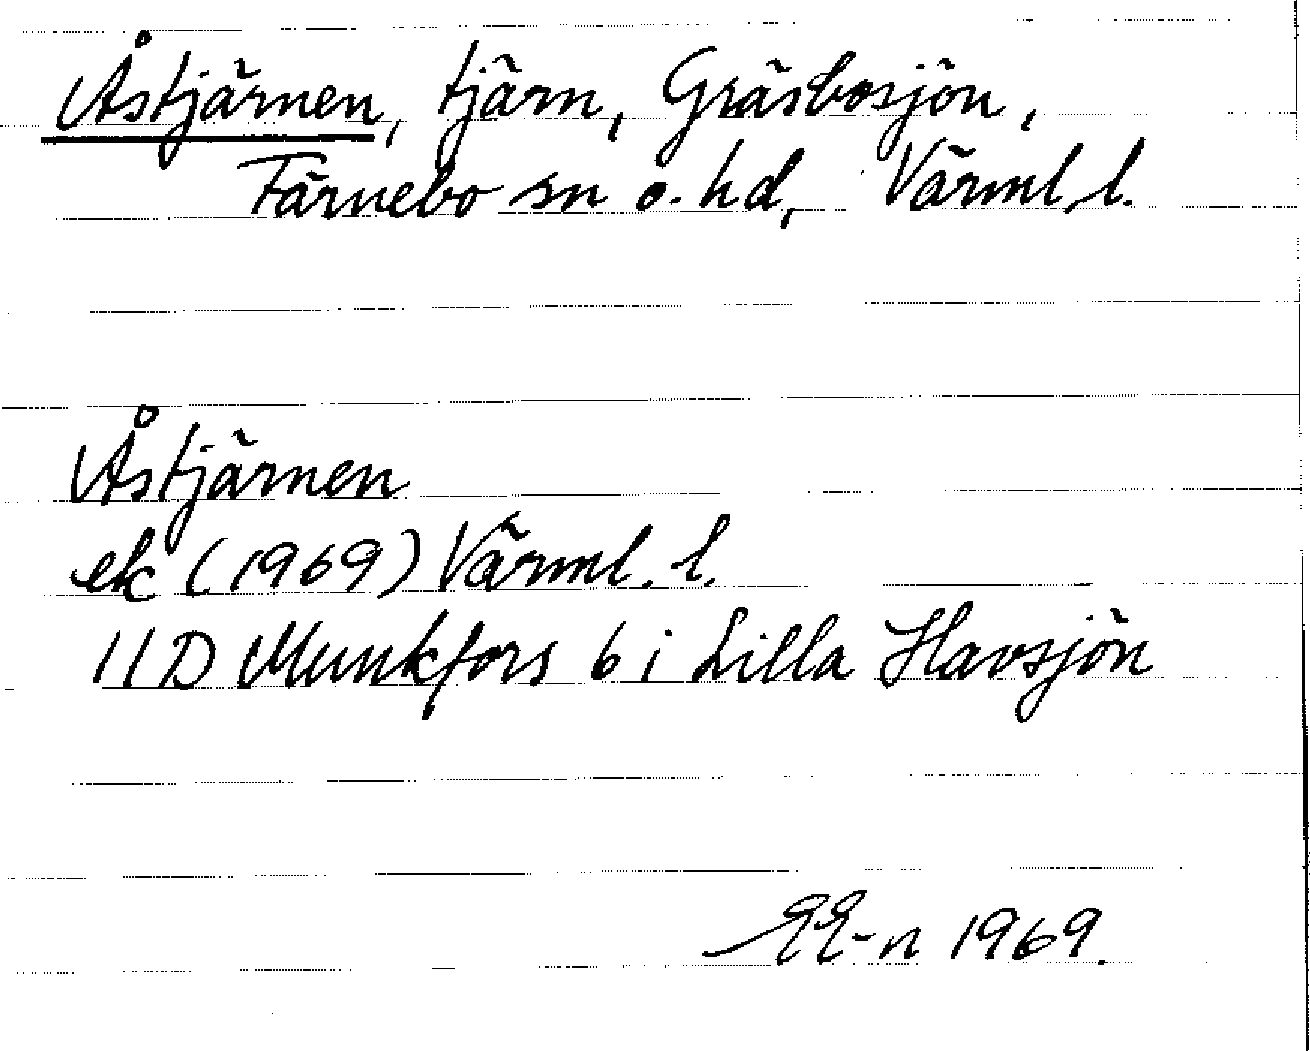 Åstjärnen, tjärn, Gräsbosjön,
Färnebo sn o. hd, Värml. l.
Åstjärnen
ek (1969) Värml. l.
11D Munkfors 6 i Lilla Havsjön
EE-n 1969.